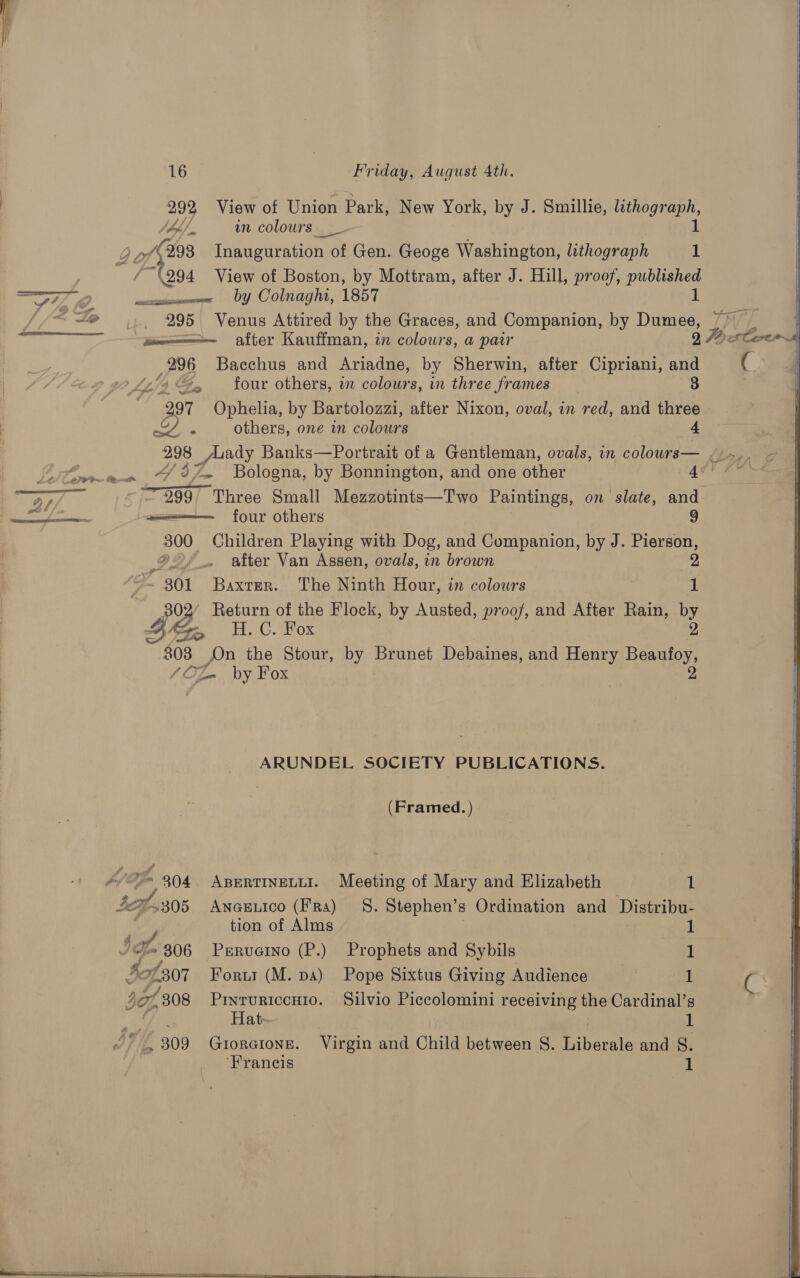 16 Friday, August 4th.
292 View of Union Park, New York, by J. Smillie, lithograph,
in colours 1
293 Inauguration of Gen. Geoge Washington, lithograph 1
294 View of Boston, by Mottram, after J. Hill, proof, published
by Colnaghi, 1857 1
295 Venus Attired by the Graces, and Companion, by Dumee,
after Kauffman, in colours, a pair 2
296 Bacchus and Ariadne, by Sherwin, after Cipriani, and
four others, in colours, in three frames 3
297 Ophelia, by Bartolozzi, after Nixon, oval, in red, and three
others, one in colours 4
298 Lady Banks—Portrait of a Gentleman, ovals, in colours—
Bologna, by Bonnington, and one other 4
299 Three Small Mezzotints—Two Paintings, on slate, and
four others 9
300 Children Playing with Dog, and Companion, by J. Pierson,
after Van Assen, ovals, in brown 2
301 BAXTER. The Ninth Hour, in colours 1
302 Return of the Flock, by Austed, proof, and After Rain, by
H. C. Fox 2
303 On the Stour, by Brunet Debaines, and Henry Beaufoy,
by Fox 2
ARUNDEL SOCIETY PUBLICATIONS.
(Framed.)
304 ABERTINELLI. Meeting of Mary and Elizabeth 1
305 ANGELICO (FRA) S. Stephen's Ordination and Distribu-
tion of Alms 1
306 PERUGINO (P.) Prophets and Sybils 1
307 FORLI (M. DA) Pope Sixtus Giving Audience 1
308 PINTURICCHIO. Silvio Piccolomini receiving the Cardinal's
Hat 1
309 GIORGIONE. Virgin and Child between S. Liberale and S.
Francis 1